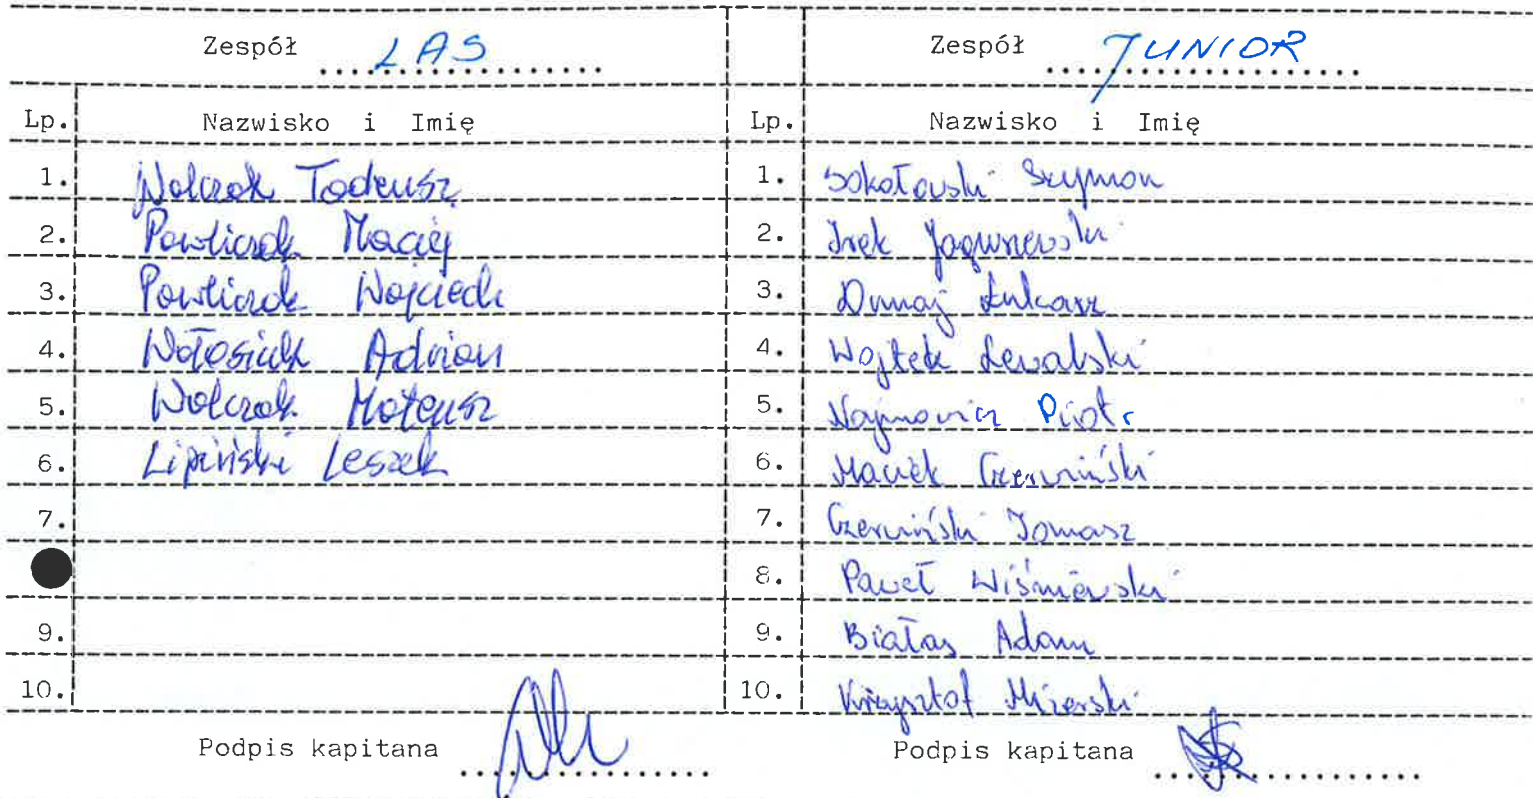 Zespół LAS
Lp. Nazwisko i Imię
1. Walczak Tadeusz
2. Pawliczak Maciej
3. Pawliczak Wojciech
4. Wołosiuk Adrian
5. Walczak Mateusz
6. Lipiński Leszek
7.
9.
10.
Podpis kapitana
Zespół JUNIOR
Lp. Nazwisko i Imię
1. Sokołowski Szymon
2. Irek
3. Dunaj Łukasz
4. Wojtek Lewalski
5. Najmowicz Piotr
6. Maciek Czerwiński
7. Czerwiński Tomasz
8. Paweł Wiśniewski
9. Białas Adam
10. Krzysztof Mierski
Podpis kapitana